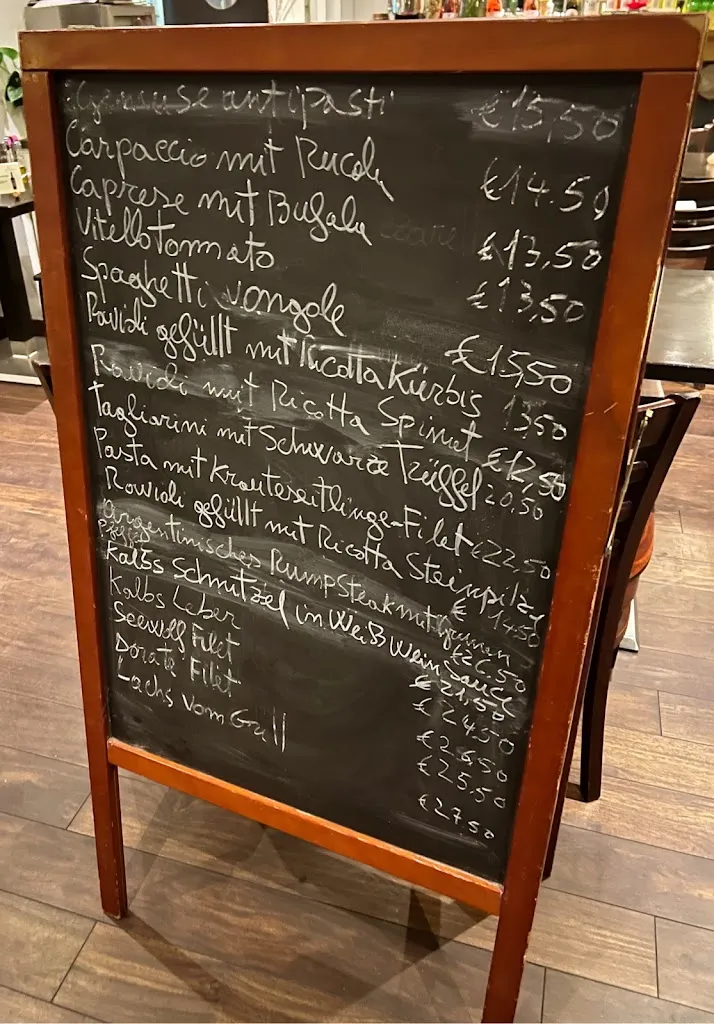 Gemuse antipasti €15,50
Carpaccio mit Rucola €14.50
Caprese mit Bufala €13,50
Vitello Tonnato €13,50
Spaghetti vongole €15,50
Ravioli gefüllt mit Ricotta Kürbis 13,50
Ravioli mit Ricotta Spinat €12,50
Tagliarini mit Schwarze Trüffel 20,50
Pasta mit Krauterseitlinge-Filet €22.50
Ravioli gefüllt mit Ricotta Steinpilze € 14.50
Argentinisches Rumpsteak mit grünen €26.50
Pfeffer
Kalbs Schnitzel in Weißwein Sauce € 21,50
Kalbs Leber € 24.50
Seewolf Filet € 26,50
Dorate Filet € 25.50
Lachs vom Grill € 27.50